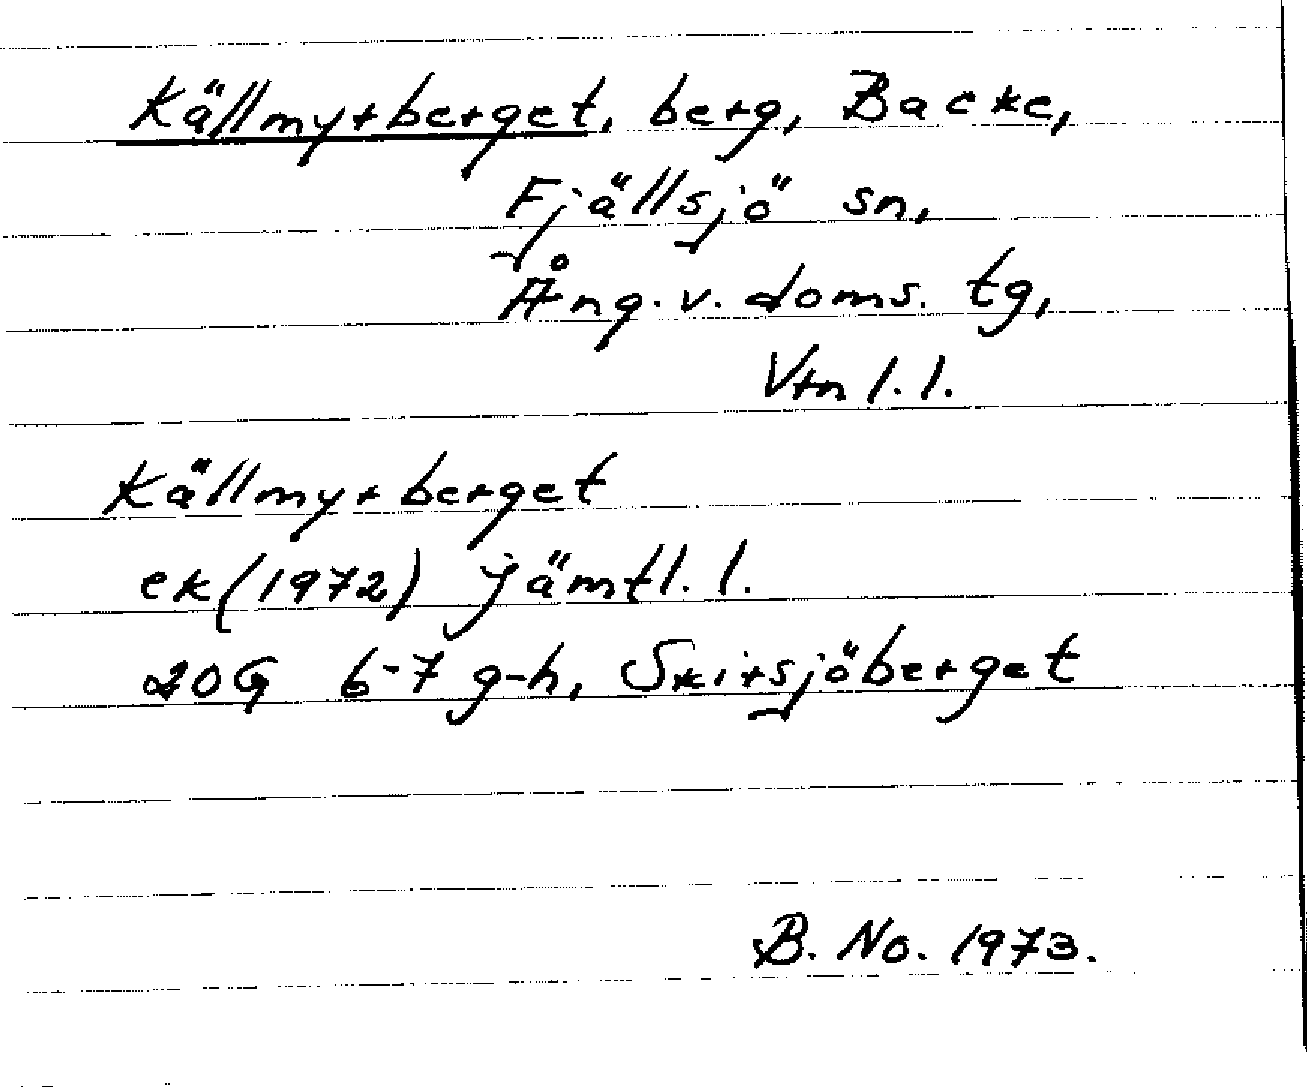 Källmyrberget, berg, Backe,
Fjällsjö sn,
Ång. v. doms. tg,
Vtn l. l.
Källmyrberget
ek (1972) Jämtl. l.
20G 6-7 g-h, Skirsjöberget
B. No. 1973.